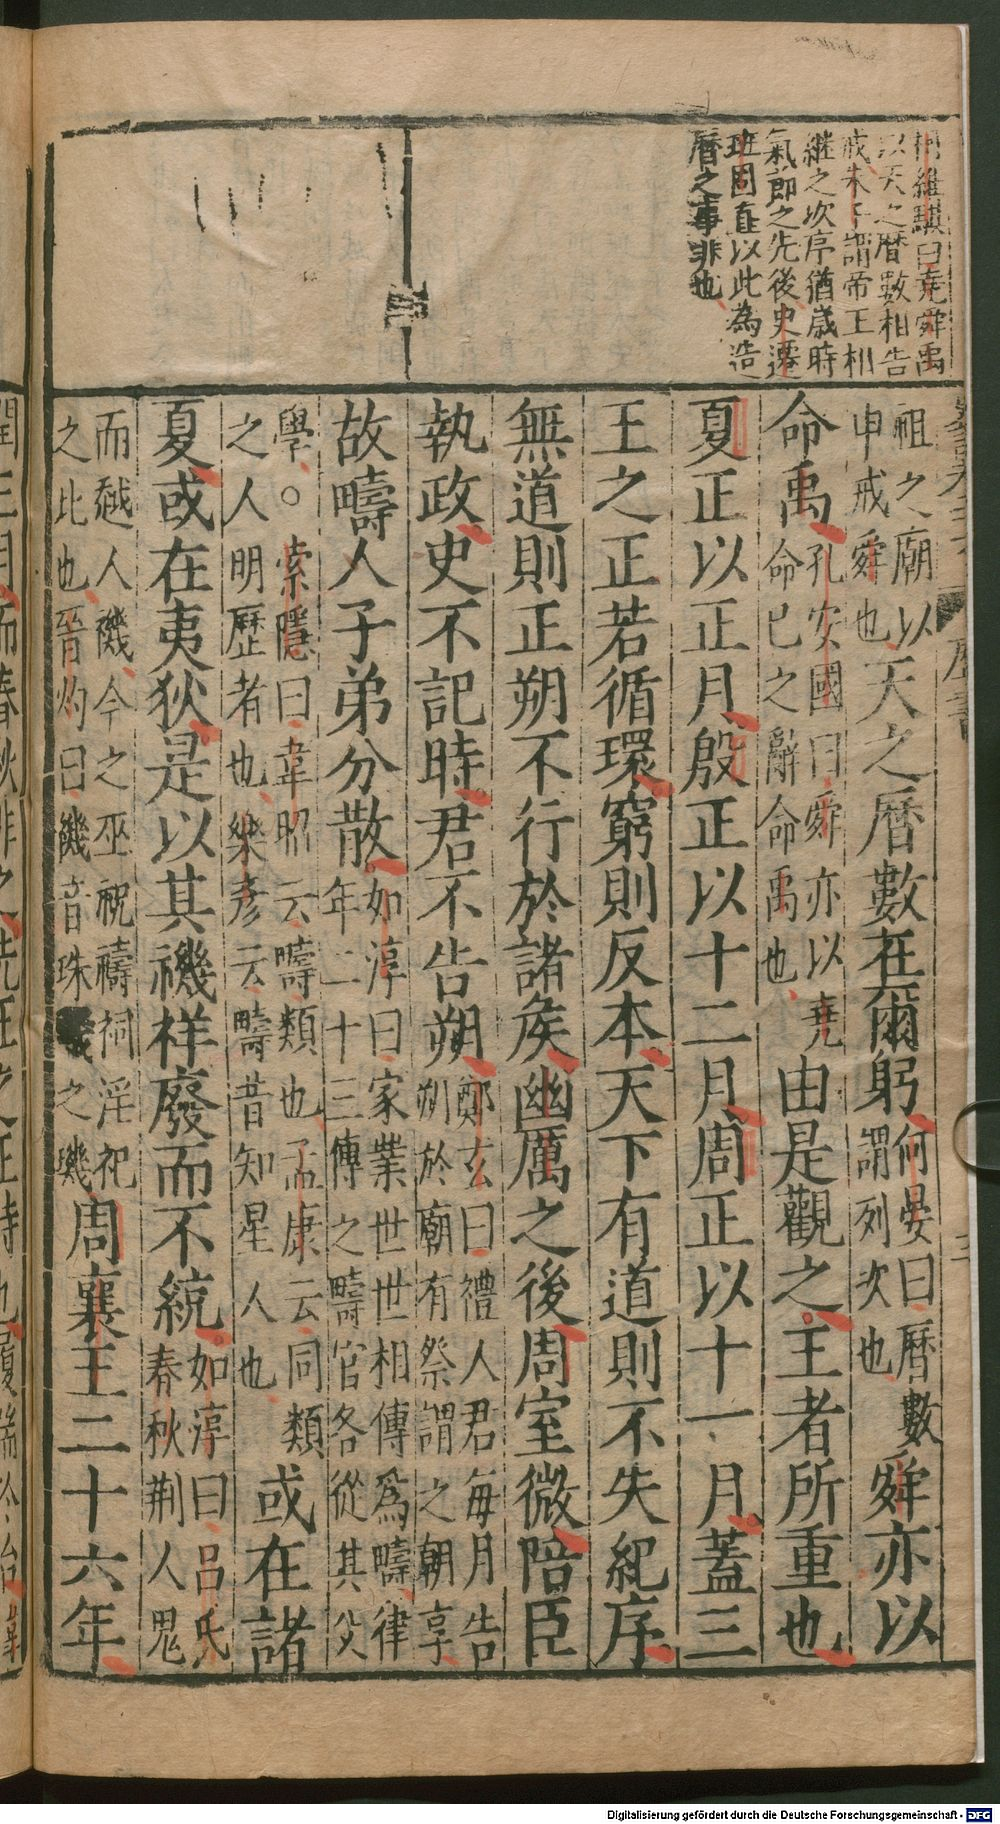 柯維騏曰堯舜禹
以天之曆數相告
戒朱子謂帝王相
繼之次序猶歲時
氣節之先後史遷
班固直以此為造
曆之事非也
祖之廟以
申戒舜也
天之曆數在爾躬
何晏曰曆數
謂列次也
舜亦以
命禹
孔安國曰舜亦以堯
命已之辭命禹也
由是觀之王者所重也
夏正以正月殷正以十二月周正以十一月蓋三
王之正若循環窮則反本天下有道則不失紀序
無道則正朔不行於諸矦幽厲之後周室微陪臣
執政史不記時君不告朔
鄭玄曰禮人君每月告
朔於廟有祭謂之朝享
故疇人子弟分散
如淳曰家業世世相傳爲疇律
年二十三傳之疇官各從其父
學○索隱曰韋昭云疇類也孟康云同類
之人明歷者也樂彦云疇昔知星人也
或在諸
夏或在夷狄是以其禨祥廢而不統
如淳曰呂氏
春秋荆人鬼
而越人禨今之巫祝禱祠淫祀
之比也晉灼曰禨音珠璣之璣
周襄王二十六年
閏三月而春秋非之先王之正時也履端於始
Digitalisierung gefördert durch die Deutsche Forschungsgemeinschaft - DFG